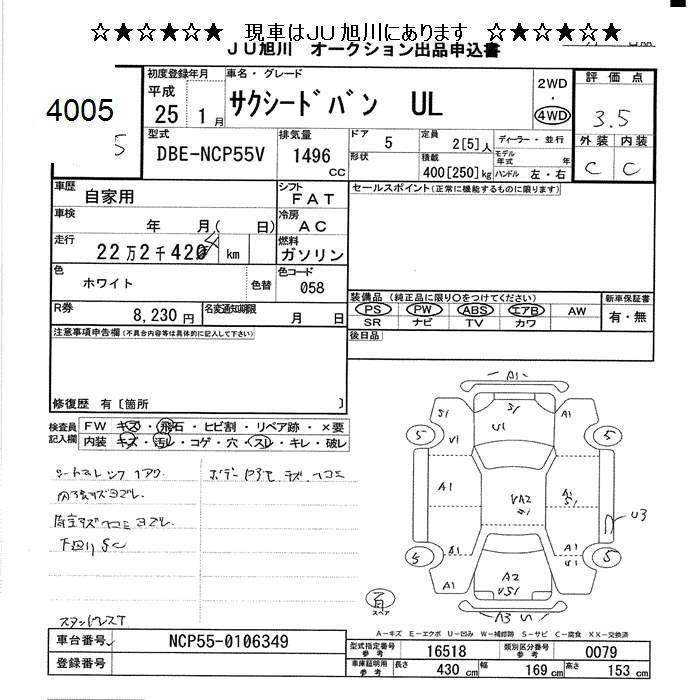 ☆★☆★☆★☆ 現車はJU旭川にあります ☆★☆★☆★☆
JU旭川 オークション出品申込書
4005
5
初度登録年月
平成
25 1月
車名・グレード
サクシードバン UL
2WD
・
4WD
評価点
3.5
外装 内装
C C
型式
DBE-NCP55V
排気量
1496
CC
ドア
5
定員
2[5]人
ディーラー・並行
形状
積載
400[250]kg
モデル年式 年
ハンドル 左・右
車歴
自家用
シフト
FAT
セールスポイント(正常に機能するものに限ります)
車検
年 月( 日)
冷房
AC
走行
22万2千420 km
燃料
ガソリン
色
ホワイト
色替
色コード
058
R券
8,230円
名変通知期限
月 日
装備品(純正品に限り〇をつけてください)
新車保証書
PS PW ABS エアB AW
有・無
SR ナビ TV カワ
注意事項申告欄(不具合内容等は具体的に記入して下さい)
後日品
修復歴 有[箇所 ]
検査員記入欄
FW キズ・飛石・ヒビ割・リペア跡・×要
内装 キズ・汚レ・コゲ・穴・スレ・キレ・破レ
A1
S1
U1
S1
U1
A1
5
5
A1
A1
A1
S1
VA2
U3
A1
A1
A1
U1
5
5
A1
A2
US1
A1
A3 U1
有
スペア
A-キズ E-エクボ U-凹み W-補修跡 S-サビ C-腐食 XX-交換済
車台番号
NCP55-0106349
登録番号
型式指定番号
参考
16518
類別区分番号
参考
0079
車庫証明用
参考
長さ
430 cm
幅
169 cm
高さ
153 cm